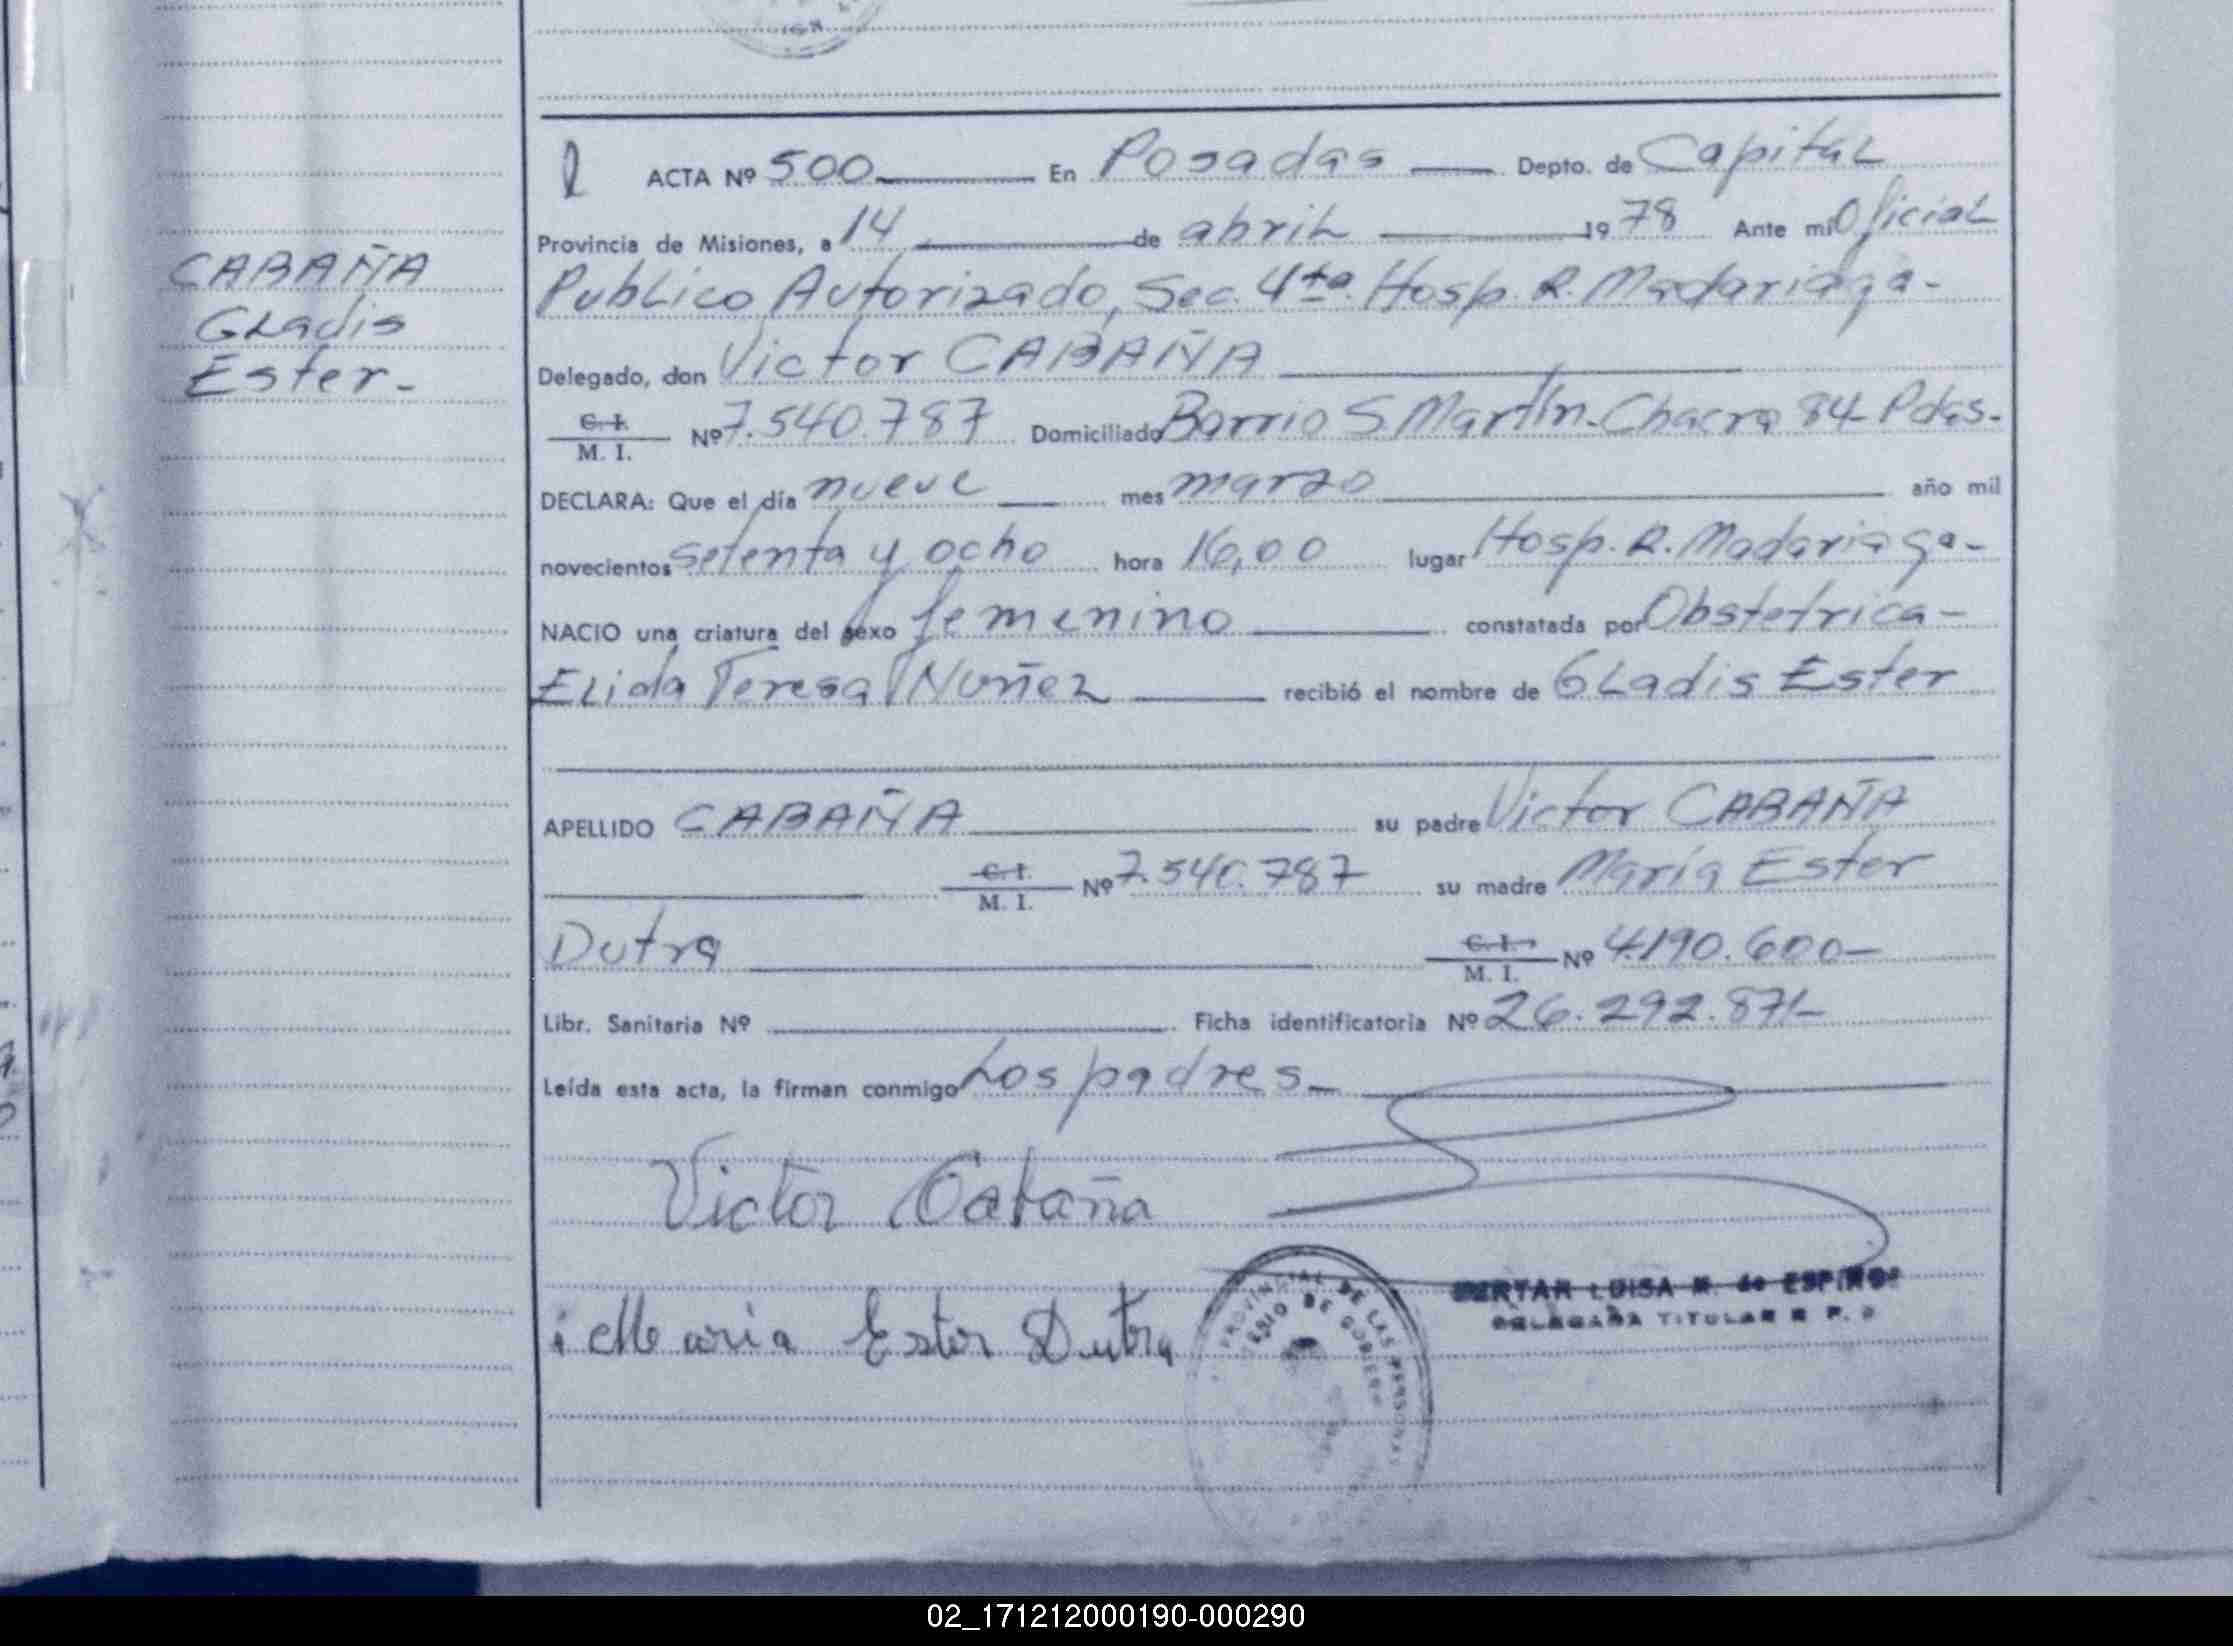 ACTA Nº 500 En Posadas Depto. de Capital
Provincia de Misiones, a 14 de abril 1978 Ante mi Oficial
Publico Autorizado, Sec. 4ta. Hosp. R. Madariaga-
CABAÑA
Gladis
Ester-
Delegado, don Victor CABAÑA
C. I.
M. I. Nº 7.540.787 Domiciliado Barrio S Martín-Chacra 84- Pdas-
DECLARA: Que el día nueve mes marzo año mil
novecientos setenta y ocho hora 16,00 lugar Hosp. R. Madariaga-
NACIO una criatura del sexo femenino constatada por Obstetrica-
Elida Teresa Nuñez recibió el nombre de Gladis Ester
APELLIDO CABAÑA su padre Victor CABAÑA
C. I.
M. I. Nº 7.540.787 su madre María Ester
Dutra C. I.
M. I. Nº 4.190.600-
Libr. Sanitaria Nº Ficha identificatoria Nº 26.292.871-
Leída esta acta, la firman conmigo Los padres-
Victor Cabaña
Maria Ester Dutra
PROVINCIAL DE LAS PERSONAS
DE GOBIERNO
LUISA M. de
DELEGADA TITULAR R. P.
02_171212000190-000290